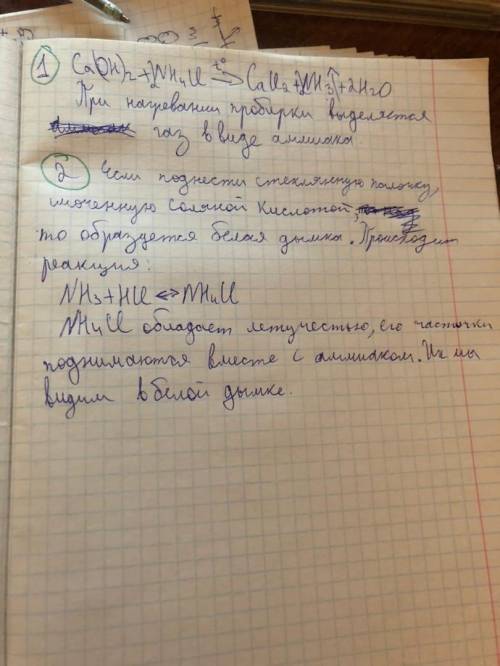 1 Ca(OH)2 + 2NH4Cl t°→ CaCl2 + 2NH3↑ + 2H2O
При нагревании пробирки выделяется
газ в виде аммиака.
2 Если поднести стеклянную палочку,
смоченную соляной кислотой,
то образуется белая дымка. Происходит
реакция:
NH3 + HCl ↔ NH4Cl
NH4Cl обладает летучестью, его частички
поднимаются вместе с аммиаком. Их мы
видим в белой дымке.